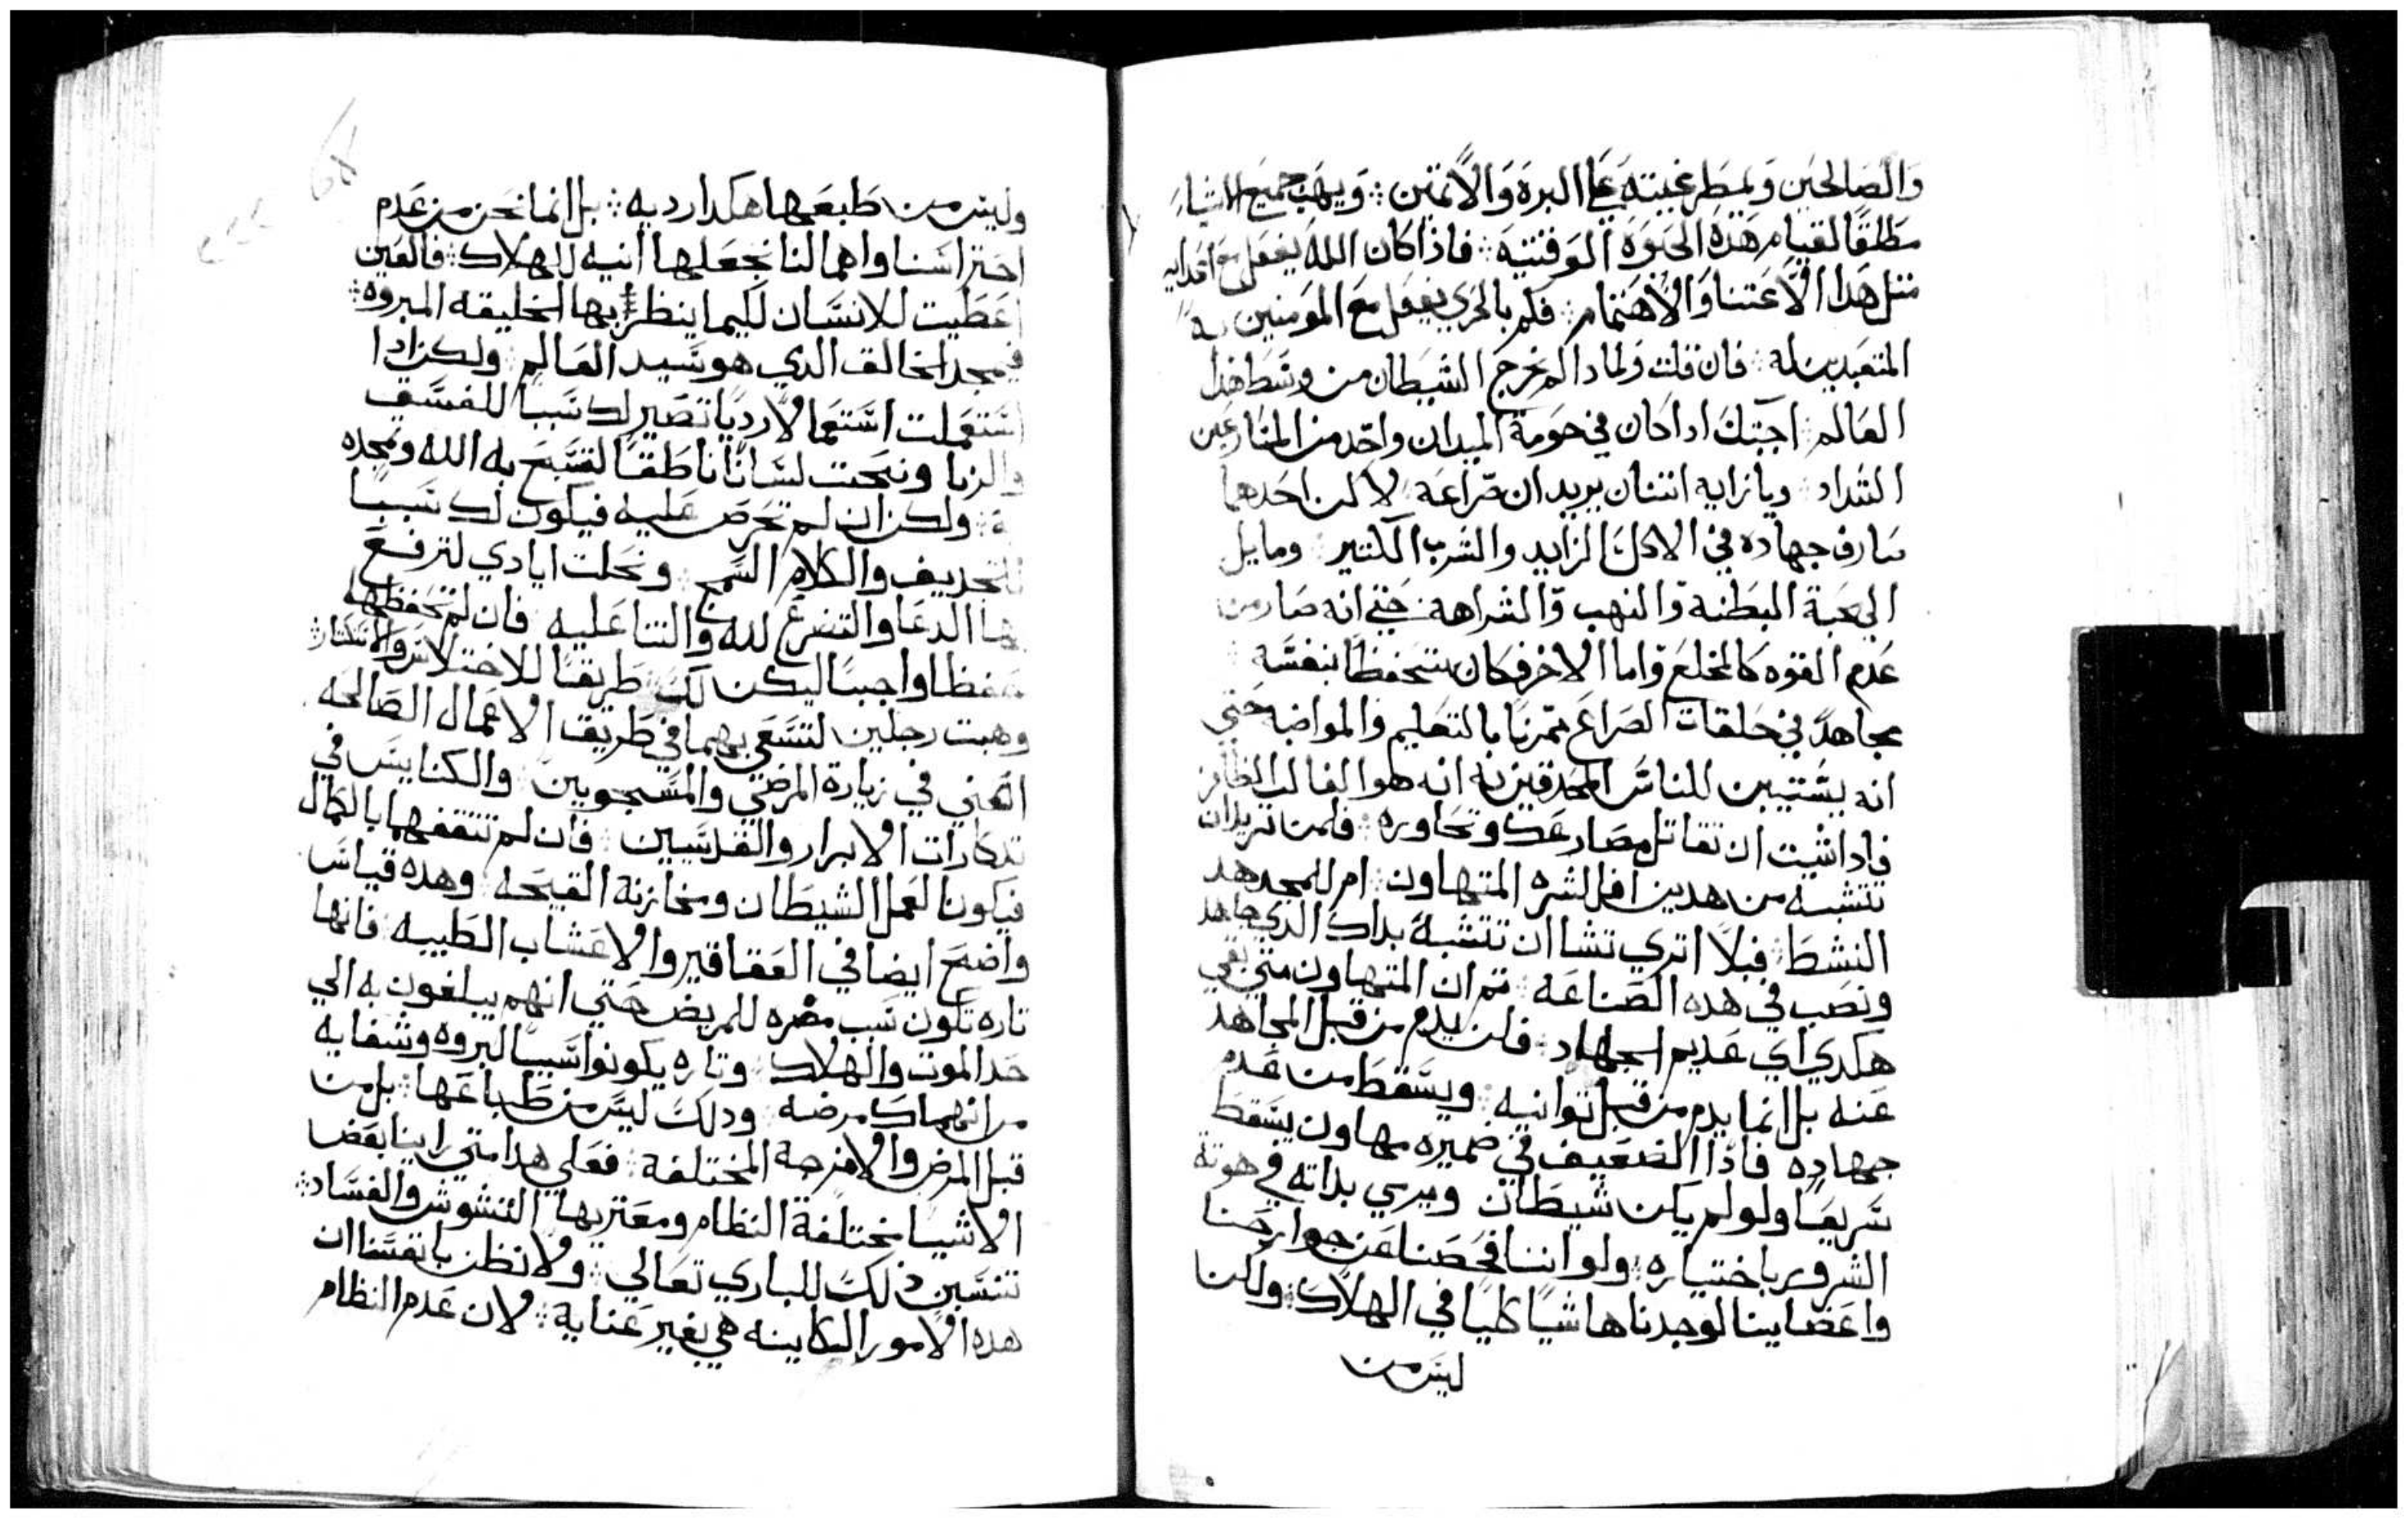 والصالحين ويمطر غيته على البره والاتمين ܀ ويهب جميع الاشيا
مطلقًا لقيام هذه الحيوه الوقتيه ܀ فاذا كان الله يفعل مع اعدايه
متل هدا الاعتنا والاهتمام ܀ فلم بالحري يفعل مع المومنين به
المتعبدين له ܀ فان قلت ولمادا لم يخرج الشيطان من وسط هدا
العالم ܀ اجبتك ادا كان في حومة الميدان واحد من المصارعين
الشداد ܀ وبازايه اتنان يريدان صراعه ܀ لاكن احدهما
صارف جهاده في الاكل الزايد والشرب الكتير ܀ ومايل
الى محبة البطنه والنهب والشراهه ܀ حتي انه صار من
عدم القوه كالمخلع واما الاخر فكان متحفظًا بنفسه
مجاهدً في حلقات الصراع متمرنًا بالتعليم والمواضبه حتي
انه يستبين للناس المحدقين به انه هوا الغالب الظافر
فادا شيت ان تقاتل مصارعك وتحاوره ܀ فلمن تريد ان
تتشبه من هدين افللشره المتهاون ܀ ام للمجد هد
النشط ܀ فبلا اتري تشا ان تتشبه بداك الدي جاهد
ونصب في هده الصناعه ܀ تم ان المتهاون متي بقي
هكدي اي عديم الجهاد ܀ فلن يدم من قبل المجاهد
عنه بل انما يدم من قبل توانيه ܀ ويسقط من عدم
جهاده فادًا الضعيف في ضميره مهاون يسقط
سريعًا ولو لم يكن شيطان ويرمي بداته في هوتة
الشرور باختياره ܀ ولو اننا فحصنا عن جوارحنا
واعضاينا لوجدناها شيًا كليًا في الهلاك ܀ ولكنا
ليس من
وليس من طبعها هكدا رديه ܀ بل انما نحن من عدم
احتراسنا واهمالنا نجعلها اتيه للهلاك ܀ فالعين
اعطيت للانسان لكيما ينظر بها الخليقه المبروه ܀
فيمجد الخالق الدي هو سيد العالم ܀ ولكن ادا
استعملت استعمالا رديا تصير لك سببا للفسق
والزنا ومنحت لسانًا ناطقًا لتسبح به الله وتمجده
به ܀ ولكن ان لم تحرص عليه فيكون لك سببًا
للتجديف والكلام السمج ܀ ونحلت ايادي لترفع
بها الدعا والتضرع لله والتنا عليه فان لم تحفظها
حفظا واجبا ليكن لك طريقا للاختلاس والاستكتار ܀
وهبت رجلين لتسعي بهما في طريق الاعمال الصالحه
اعني في زيارة المرضي والمسجونين ܀ والكنايس في
تدكارات الابرار والقديسين ܀ فان لم تتقفها بالكمال
فيكونا لعمل الشيطان ومخازنه القبيحه ܀ وهده قياس
واضح ايضا في العقاقير والاعشاب الطبيه ܀ فانها
تاره تكون سبب مضره للمريض حتي انهم يبلغون به الي
حد الموت والهلاك ܀ وتاره يكونوا سببا لبروه وشفايه
من انهماك مرضه ܀ ودلك ليس من طباعها ܀ بل من
قبل المرض والامزجة المختلفة ܀ فعلي هدا متي راينا بعض
الاشيا مختلفة النظام ومعتريها التشوش والفساد ܀
تنسبن دلك للباري تعالي ܀ ولا نظن بانفسنا ان
هده الامور الكاينه هي بغير عنايه ܀ لان عدم النظام